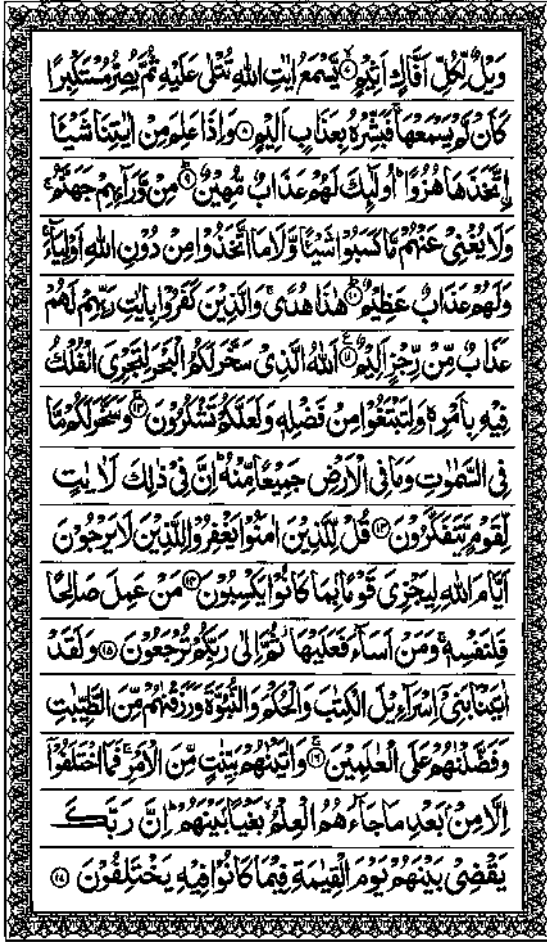 وَيْلٌ لِّكُلِّ اَفَّاكٍ اَثِيْمٍ ۙ﴿۷﴾ يَّسْمَعُ اٰيٰتِ اللّٰهِ تُتْلٰى عَلَيْهِ ثُمَّ يُصِرُّ مُسْتَكْبِرًا
كَاَنْ لَّمْ يَسْمَعْهَا ۚ فَبَشِّرْهُ بِعَذَابٍ اَلِيْمٍ ﴿۸﴾ وَاِذَا عَلِمَ مِنْ اٰيٰتِنَا شَيْـًٔا
اۨتَّخَذَهَا هُزُوًا ؕ اُولٰٓئِكَ لَهُمْ عَذَابٌ مُّهِيْنٌ ؕ﴿۹﴾ مِنْ وَّرَآئِهِمْ جَهَنَّمُ ۚ
وَلَا يُغْنِيْ عَنْهُمْ مَّا كَسَبُوْا شَيْـًٔا وَّلَا مَا اتَّخَذُوْا مِنْ دُوْنِ اللّٰهِ اَوْلِيَآءَ ۚ
وَلَهُمْ عَذَابٌ عَظِيْمٌ ؕ﴿۱۰﴾ هٰذَا هُدًى ۚ وَالَّذِيْنَ كَفَرُوْا بِاٰيٰتِ رَبِّهِمْ لَهُمْ
عَذَابٌ مِّنْ رِّجْزٍ اَلِيْمٌ ﴿۱۱﴾ اَللّٰهُ الَّذِيْ سَخَّرَ لَكُمُ الْبَحْرَ لِتَجْرِيَ الْفُلْكُ
فِيْهِ بِاَمْرِهٖ وَلِتَبْتَغُوْا مِنْ فَضْلِهٖ وَلَعَلَّكُمْ تَشْكُرُوْنَ ۚ﴿۱۲﴾ وَسَخَّرَ لَكُمْ مَّا
فِي السَّمٰوٰتِ وَمَا فِي الْاَرْضِ جَمِيْعًا مِّنْهُ ؕ اِنَّ فِيْ ذٰلِكَ لَاٰيٰتٍ
لِّقَوْمٍ يَّتَفَكَّرُوْنَ ﴿۱۳﴾ قُلْ لِّلَّذِيْنَ اٰمَنُوْا يَغْفِرُوْا لِلَّذِيْنَ لَا يَرْجُوْنَ
اَيَّامَ اللّٰهِ لِيَجْزِيَ قَوْمًۢا بِمَا كَانُوْا يَكْسِبُوْنَ ﴿۱۴﴾ مَنْ عَمِلَ صَالِحًا
فَلِنَفْسِهٖ ۚ وَمَنْ اَسَآءَ فَعَلَيْهَا ؗ ثُمَّ اِلٰى رَبِّكُمْ تُرْجَعُوْنَ ﴿۱۵﴾ وَلَقَدْ
اٰتَيْنَا بَنِيْٓ اِسْرَآءِيْلَ الْكِتٰبَ وَالْحُكْمَ وَالنُّبُوَّةَ وَرَزَقْنٰهُمْ مِّنَ الطَّيِّبٰتِ
وَفَضَّلْنٰهُمْ عَلَى الْعٰلَمِيْنَ ۚ﴿۱۶﴾ وَاٰتَيْنٰهُمْ بَيِّنٰتٍ مِّنَ الْاَمْرِ ۚ فَمَا اخْتَلَفُوْٓا
اِلَّا مِنْۢ بَعْدِ مَا جَآءَهُمُ الْعِلْمُ ۙ بَغْيًۢا بَيْنَهُمْ ؕ اِنَّ رَبَّكَ
يَقْضِيْ بَيْنَهُمْ يَوْمَ الْقِيٰمَةِ فِيْمَا كَانُوْا فِيْهِ يَخْتَلِفُوْنَ ﴿۱۷﴾